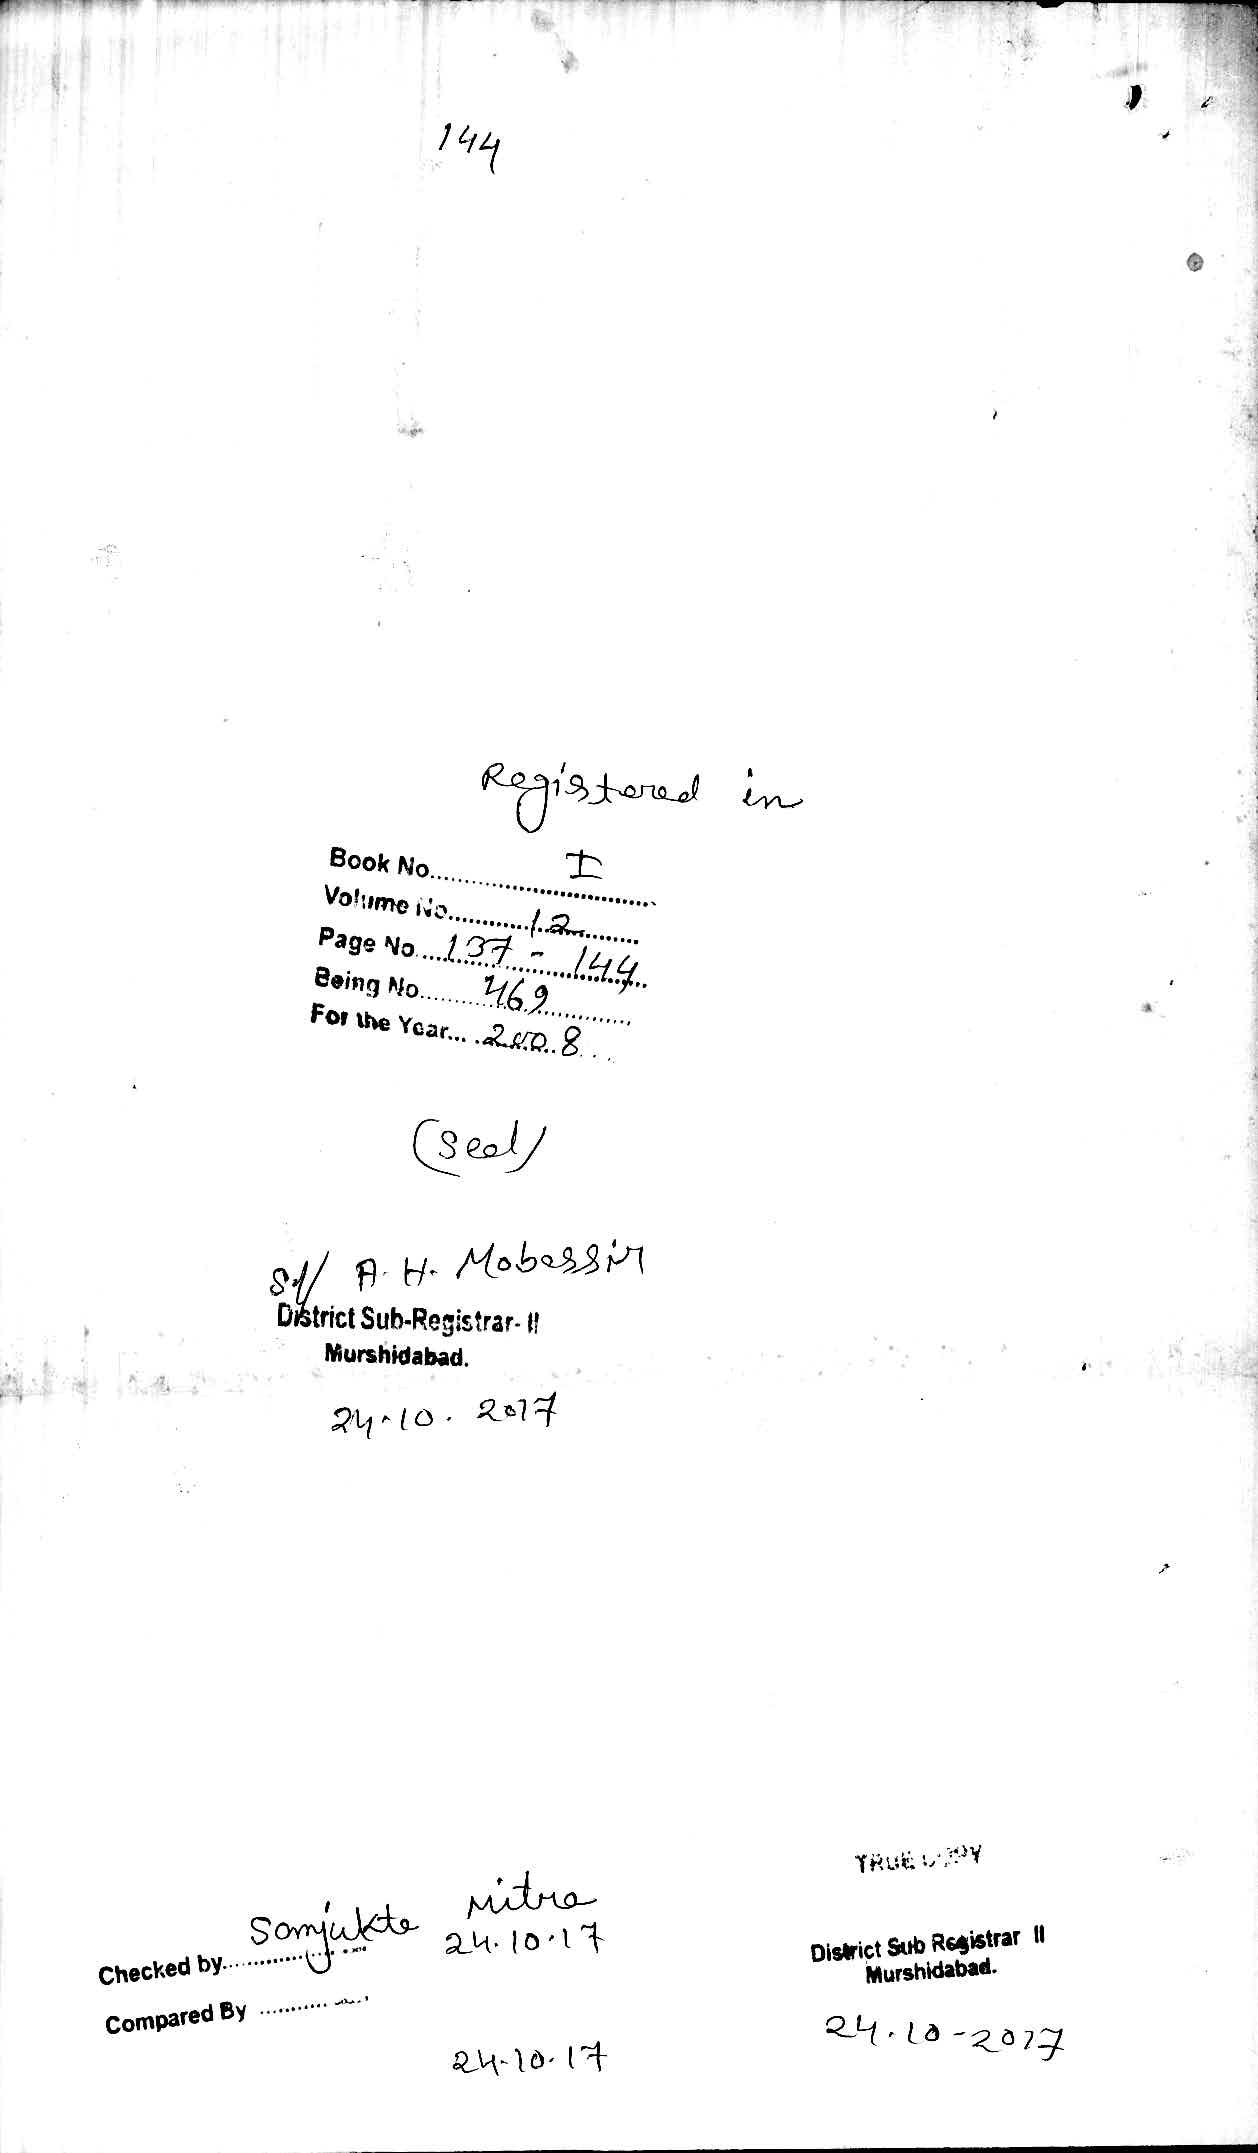 144
Registered in
Book No. I
Volume No. 12
Page No. 137 - 144
Being No. 469
For the Year... 2008
(Seal)
Sd/ A. H. Mobassir
District Sub-Registrar- II
Murshidabad.
24.10.2017
Samjukta Mitra
Checked by 24.10.17
Compared By
24.10.17
TRUE COPY
District Sub Registrar II
Murshidabad.
24.10-2017